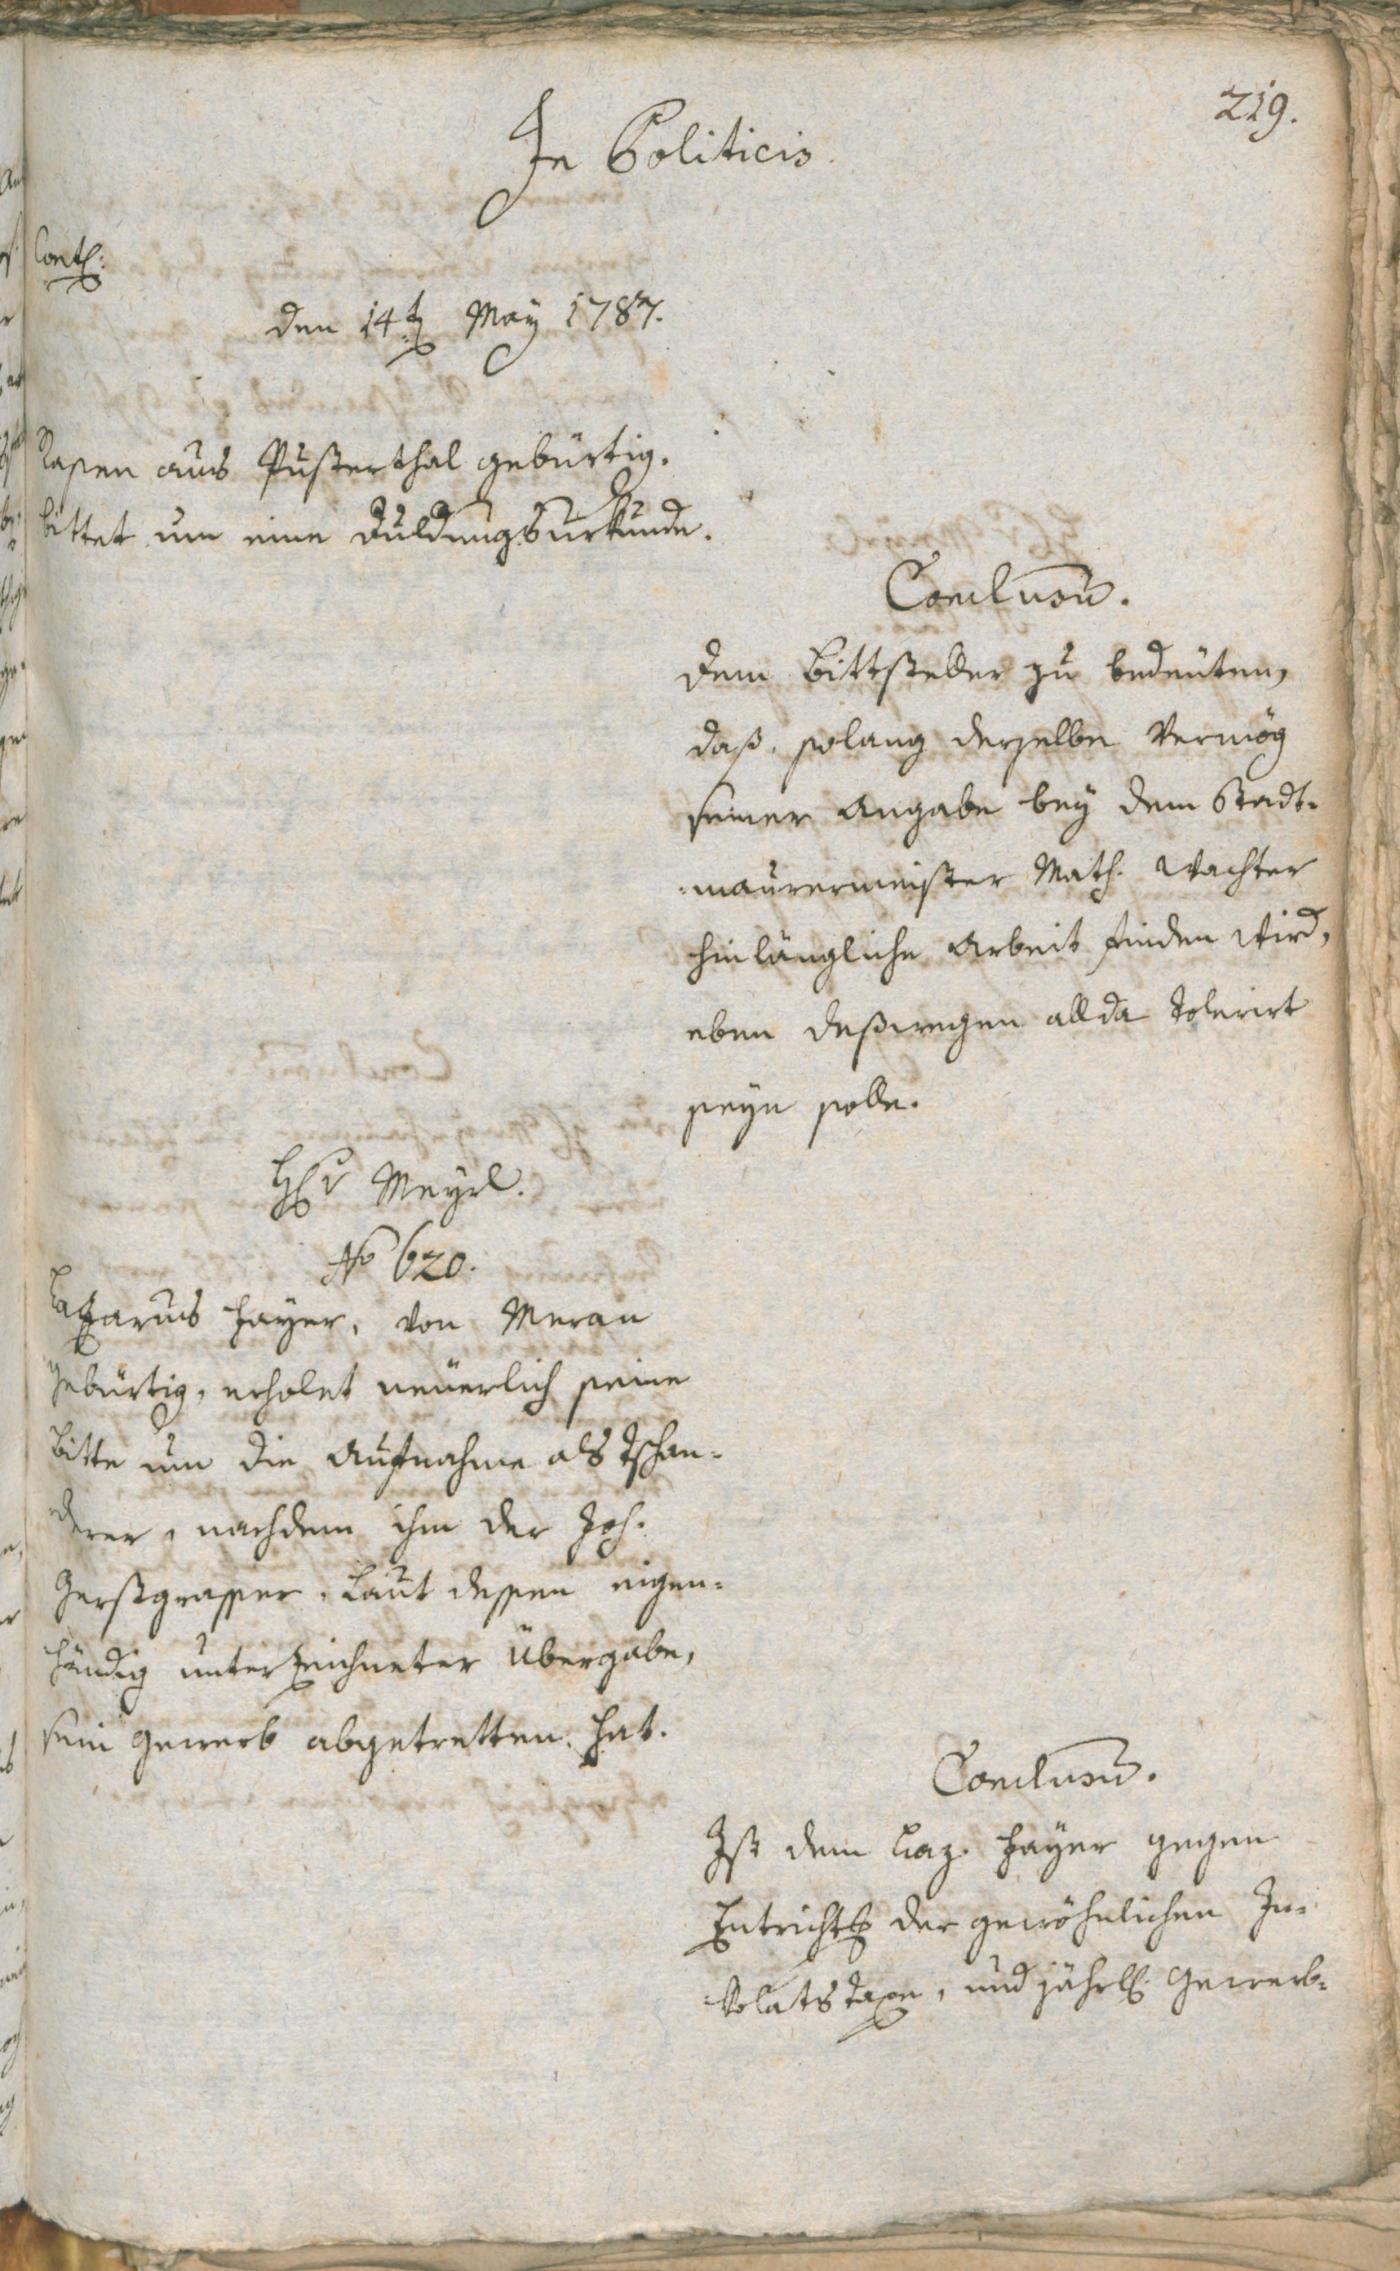 219.
In Politicis.
Cont:
den 14t May 1787.
Rasen aus Pusterthal gebürtig.
bittet um eine Duldungsurkunde.
Conclusū.
Dem Bittsteller zu bedeuten,
daß, solang derselbe vermög
seiner Angabe bey dem Stadt-
maurermeister Math. Wachter
hinlängliche Arbeit finden wird,
eben deßwegen allda tolerirt
seyn solle.
Hr Meyrl.
No 620.
Lazarus Hayer, von Meran
gebürtig, erholet neuerlich seine
Bitte um die Aufnahme als Tschan-
derer, nachdem ihm der Joh.
Gerstgrasser, laut dessen eigen-
händig unterzeichneter Übergabe,
sein Gewerb abgetretten hat.
Conclusū.
Ist dem Laz. Hayer gegen
Entricht der gewöhnlichen In-
kolatstaxe, und jährl. Gewerb-